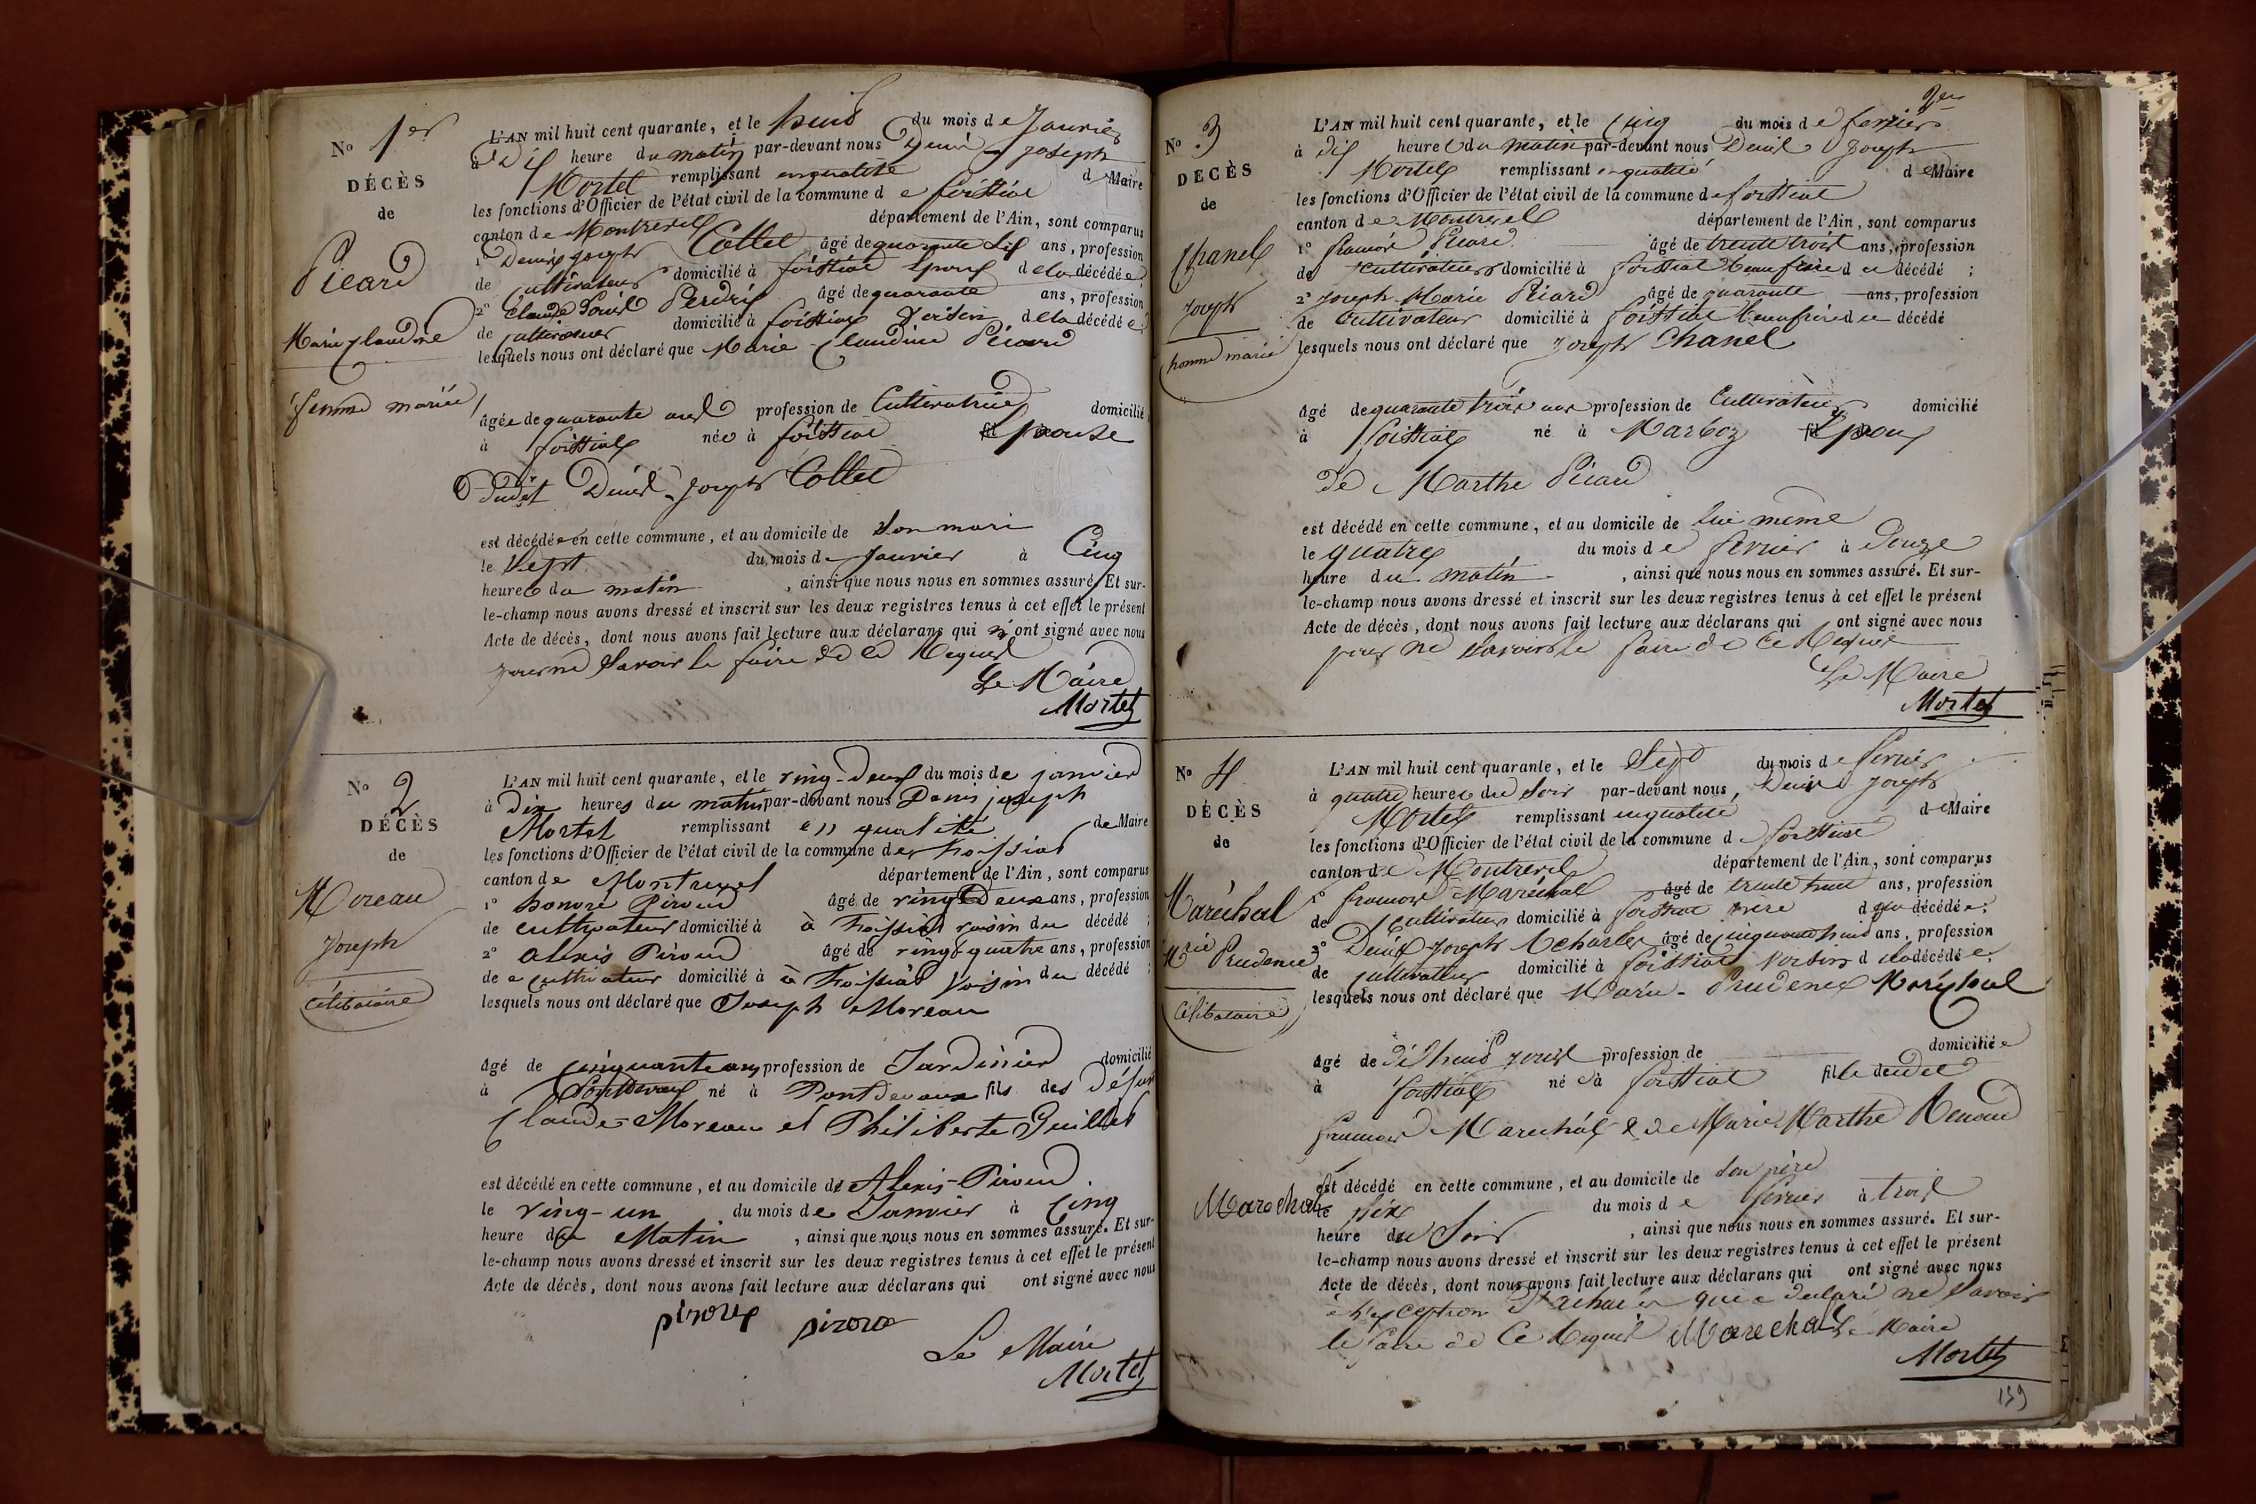 N° 1er
DÉCÈS
de
Picard
Marie Claudine
femme mariée
L'AN mil huit cent quarante, et le huit du mois de Janvier
à Dix heure du matin par-devant nous Denis Joseph
Mortel remplissant en qualité de Maire
les fonctions d'Officier de l'état civil de la commune de foissiat
canton de Montrevel département de l'Ain, sont comparus
1° Denis Joseph Collet âgé de quarante six ans, profession
de Cultivateur domicilié à foissiat Epoux de la décédée
2° Claude Louis Perdrix âgé de quarante ans, profession
de Cultivateur domicilié à foissiat Voisin de la décédée
lesquels nous ont déclaré que Marie Claudine Picard
âgée de quarante ans profession de Cultivatrice domicilié
à foissiat née à foissiat Epouse
dudit Denis Joseph Collet
est décédée en cette commune, et au domicile de Son mari
le Sept du mois de Janvier à Cinq
heure du matin, ainsi que nous nous en sommes assuré. Et sur-
le-champ nous avons dressé et inscrit sur les deux registres tenus à cet effet le présent
Acte de décès, dont nous avons fait lecture aux déclarans qui n'ont signé avec nous
pour ne Savoir le faire de ce Requis
Le Maire
Mortel
N° 2
DÉCÈS
de
Moreau
Joseph
Célibataire
L'AN mil huit cent quarante, et le ving-deux du mois de janvier
à Dix heures du matin par-devant nous Denis joseph
Mortel remplissant en qualité de Maire
les fonctions d'Officier de l'état civil de la commune de foissiat
canton de Montrevel département de l'Ain, sont comparus
1° honoré Piroud âgé de ving Deux ans, profession
de cultivateur domicilié à à foissiat voisin du décédé;
2° alexis Piroud âgé de ving quatre ans, profession
de cultivateur domicilié à à foissiat Voisin du décédé;
lesquels nous ont déclaré que Joseph Moreau
âgé de cinquante ans profession de Jardinier domicilié
à Pontdevaux né à Pontdevaux fils des Défunt
Claude Moreau et Philiberte Guillet
est décédé en cette commune, et au domicile de Alexis-Piroud
le ving-un du mois de Janvier à Cinq
heure du Matin, ainsi que nous nous en sommes assuré. Et sur-
le-champ nous avons dressé et inscrit sur les deux registres tenus à cet effet le présent
Acte de décès, dont nous avons fait lecture aux déclarans qui ont signé avec nous
Le Maire
Mortel
N° 3
DÉCÈS
de
Chanel
Joseph
homme marié
L'AN mil huit cent quarante, et le Cinq du mois de fevrier
à dix heure du matin par-devant nous Denis Joseph
Mortel remplissant en qualité de Maire
les fonctions d'Officier de l'état civil de la commune de foissiat
canton de Montrevel département de l'Ain, sont comparus
1° francois Picard âgé de trente trois ans, profession
de cultivateur domicilié à foissiat beaufrere du décédé;
2° Joseph Marie Picard âgé de quarante ans, profession
de Cultivateur domicilié à foissiat beaufrere du décédé
lesquels nous ont déclaré que Joseph Chanel
âgé de quarante trois ans profession de Cultivateur domicilié
à foissiat né à Marboz Epoux
de Marthe Picard
est décédé en cette commune, et au domicile de lui même
le quatre du mois de fevrier à douze
heure du matin, ainsi que nous nous en sommes assuré. Et sur-
le-champ nous avons dressé et inscrit sur les deux registres tenus à cet effet le présent
Acte de décès, dont nous avons fait lecture aux déclarans qui ont signé avec nous
pour ne Savoir le faire de Ce Requis
Le Maire
Mortel
N° 4
DÉCÈS
de
Maréchal
Mrie Prudence
Célibataire
L'AN mil huit cent quarante, et le Sept du mois de fevrier
à quatre heure du Soir par-devant nous, Denis Joseph
Mortel remplissant en qualité de Maire
les fonctions d'Officier de l'état civil de la commune de foissiat
canton de Montrevel département de l'Ain, sont comparus
1° francois Maréchal âgé de trente huit ans, profession
de Cultivateur domicilié à foissiat pere de la décédée;
2° Denis Joseph âgé de cinquante huit ans, profession
de cultivateur domicilié à foissiat Voisin de la décédée;
lesquels nous ont déclaré que Marie-Prudence Maréchal
âgé de dix huit jours profession de domiciliée
à foissiat née à foissiat fille dudit
francois Marechal & de Marie Marthe Renoud
est décédé en cette commune, et au domicile de Son père
Marechal
le Six du mois de fevrier à trois
heure du Soir, ainsi que nous nous en sommes assuré. Et sur-
le-champ nous avons dressé et inscrit sur les deux registres tenus à cet effet le présent
Acte de décès, dont nous avons fait lecture aux déclarans qui ont signé avec nous
à l'exception qui a declaré ne Savoir
le faire de Ce Requis Marechal Le Maire
Mortel
159